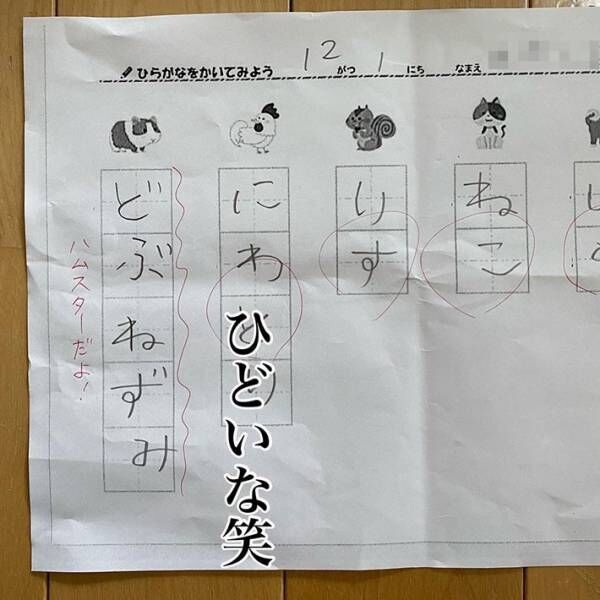 ひらがなをかいてみよう 12がつ 1にち なまえ
どぶねずみ
ハムスターだよ!
にわとり
りす
ねこ
ひどいな笑